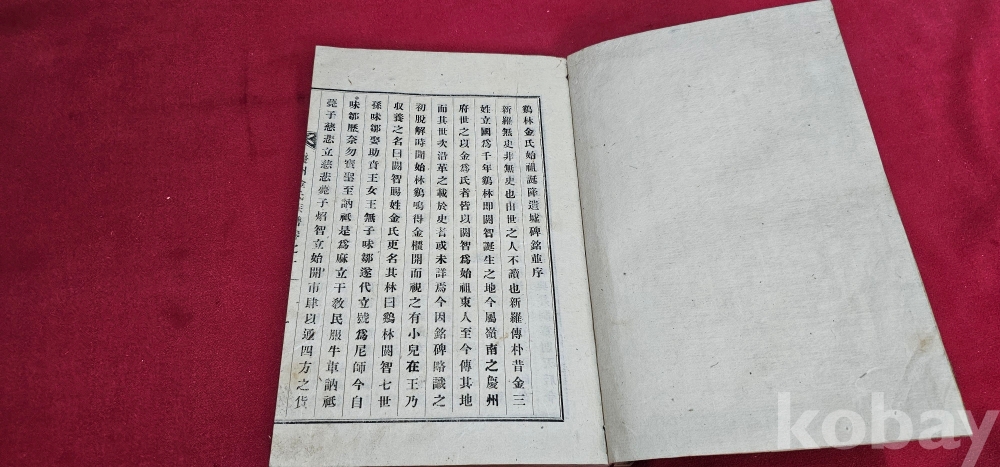 鷄林金氏始祖誕降遺墟碑銘並序
新羅無史非無史也由世之人不讀也新羅傳朴昔金三
姓立國爲千年鷄林即閼智誕生之地今屬嶺南之慶州
府世之以金爲氏者皆以閼智爲始祖東人至今傳其地
而其世次沿革之載於史者或未詳焉今因銘碑略識之
初脫解時聞始林鷄鳴得金櫃開而視之有小兒在王乃
収養之名曰閼智賜姓金氏更名其林曰鷄林閼智七世
孫味鄒娶助賁王女王無子味鄒遂代立號爲尼師今自
味鄒歷奈勿實聖至訥祗是爲麻立干敎民服牛車訥祗
薨子慈悲立慈悲薨子炤智立始開市肆以通四方之貨
金氏
kobay